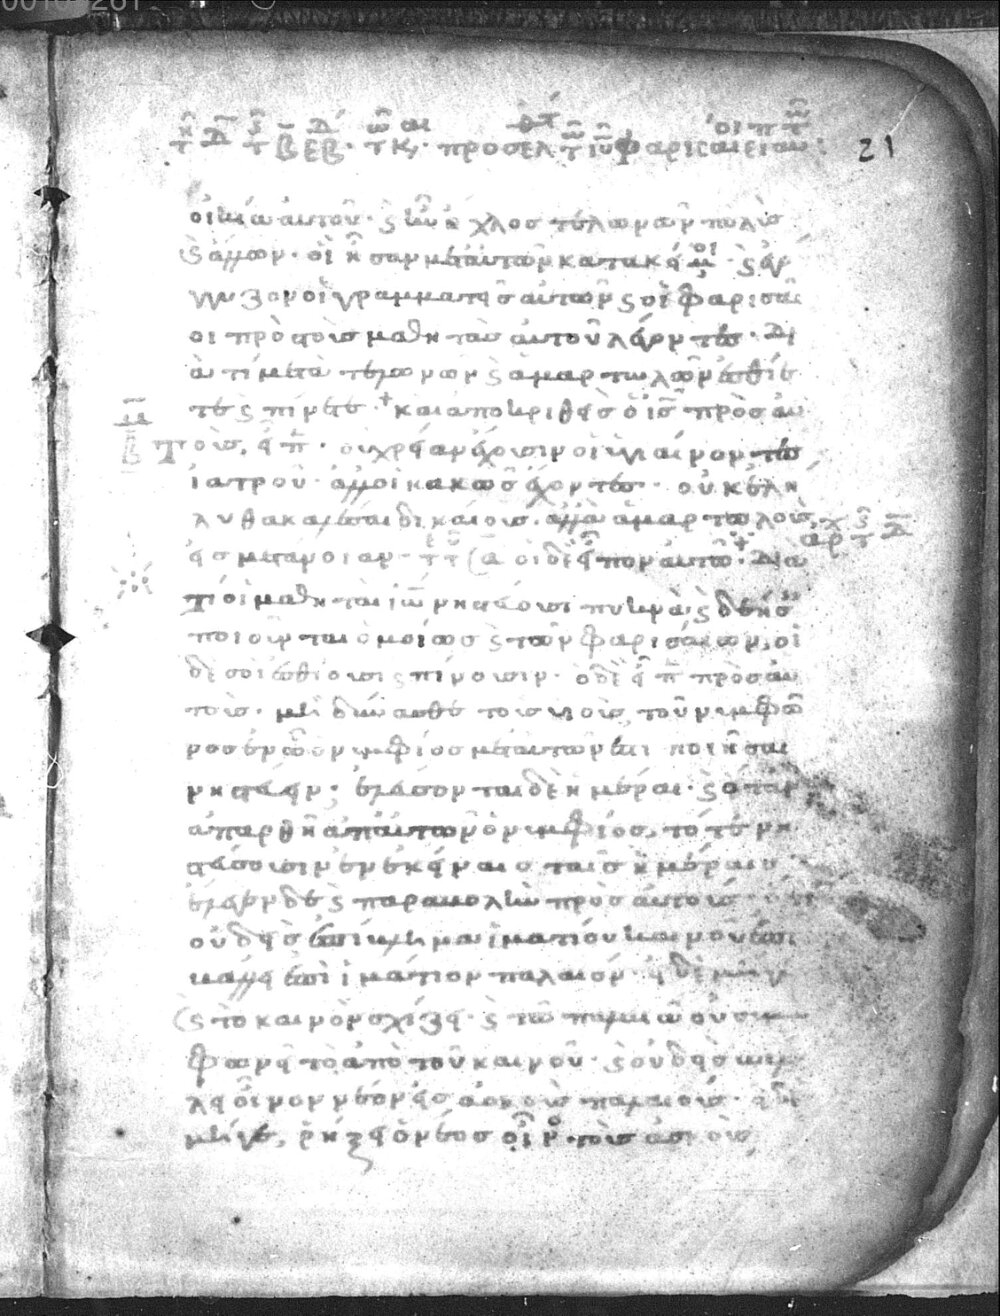 οἰκία αὐτοῦ· ϛ ἦν ὄχλος τελωνῶν πολὺς
ϛ ἄλλων· οἳ ἦσαν μετ' αὐτῶν κατακείμενοι· ϛ ἐγ
γυζον οἱ γραμματεῖς αὐτῶν ϛ οἱ φαρισαῖ
οι πρὸς τοὺς μαθητὰς αὐτοῦ λέγοντες· Δι
ὰ τί μετὰ τελωνῶν ϛ ἁμαρτωλῶν ἐσθίε
τε ϛ πίνετε· καὶ ἀποκριθεὶς ὁ ις πρὸς αὐ
Τοὺς, εἶπ· οὐ χρείαν ἔχουσιν οἱ ὑγιαίνοντες
ἰατροῦ· ἀλλ' οἱ κακῶς ἔχοντες· οὐκ ἐλή
λυθα καλέσαι δικαίους· ἀλλὰ ἁμαρτωλοὺς
εἰς μετάνοιαν· οἱ δὲ εἶπον αὐτῶ· Δια
τί οἱ μαθηταὶ ιω νηστεύουσι πυκνὰ, ϛ δεήσεις
ποιοῦνται ὁμοίως ϛ τῶν φαρισαίων, οἱ
δὲ σοὶ ἐσθίουσι ϛ πίνουσιν· ὁ δὲ εἶπ πρὸς αὐ
τούς· μὴ δύνασθε τοὺς υἱοὺς τοῦ νυμφῶ
νος ἐν ὧ ὁ νυμφίος μετ' αὐτῶν ἐστι ποιῆσαι
νηστεύειν· ἐλεύσονται δὲ ἡμέραι· ϛ ὅταν
ἀπαρθῆ ἀπ' αὐτῶν ὁ νυμφίος, τότε νη
στεύσουσιν ἐν ἐκείναις ταῖς ἡμέραις
ἔλεγεν δὲ ϛ παραβολὴν πρὸς αὐτούς
οὐδεὶς ἐπίβλημα ἱματίου καινοῦ ἐπι
βάλλει ἐπὶ ἱμάτιον παλαιόν· εἰ δὲ μήγε
ϛ τὸ καινὸν σχίζει· ϛ τῶ παλαιῶ οὐ συμ
φωνεῖ τὸ ἀπὸ τοῦ καινοῦ· ϛ οὐδεὶς βάλ
λει οἶνον νέον εἰς ἀσκοὺς παλαιούς· εἰ δὲ
μήγε, ῥήξει ὁ νέος οἶνος τοὺς ἀσκοὺς
21